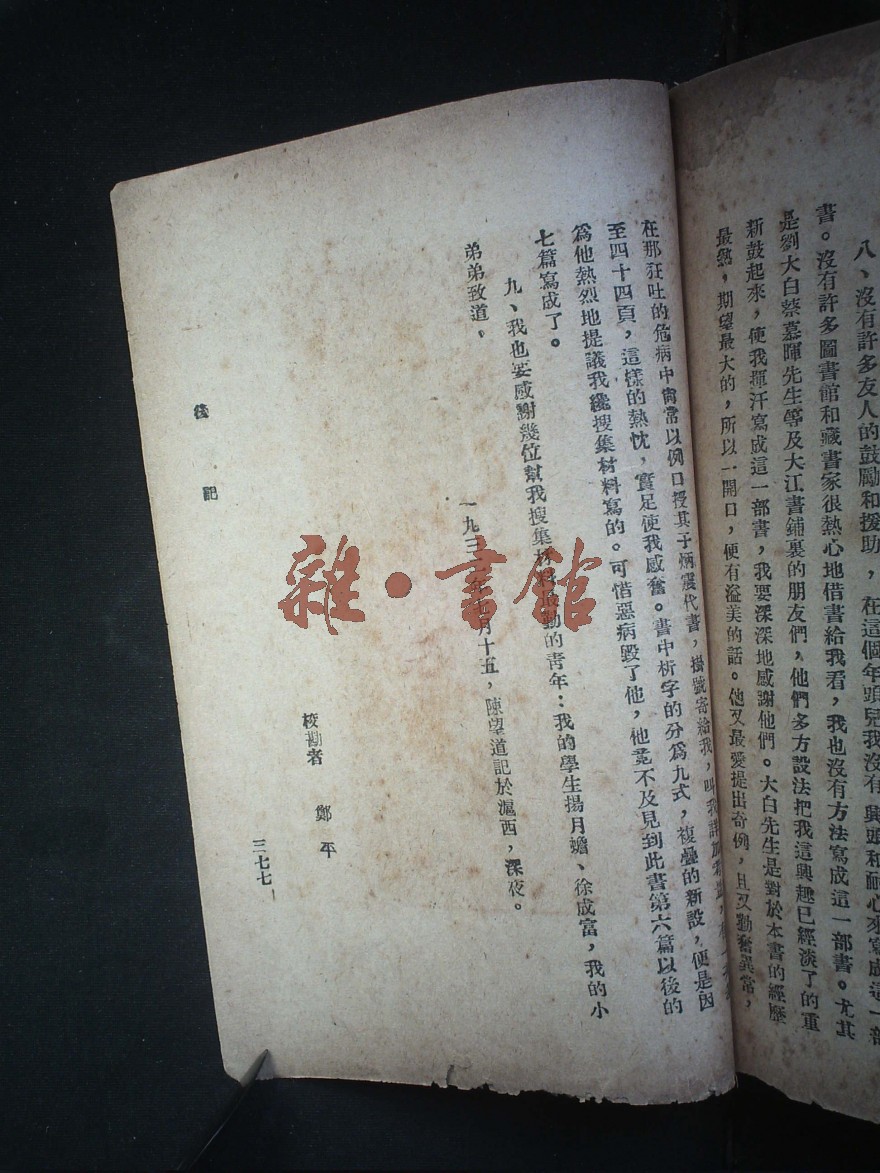 八、沒有許多友人的鼓勵和援助，在這個年頭兒我沒有興頭和耐心來寫成這一部
書。沒有許多圖書館和藏書家很熱心地借書給我看，我也沒有方法寫成這一部書。尤其
是劉大白蔡慕暉先生等及大江書鋪裏的朋友們，他們多方設法把我這興趣已經淡了的重
新鼓起來，使我揮汗寫成這一部書，我要深深地感謝他們。大白先生是對於本書的經歷
最熱，期望最大的，所以一開口，便有溢美的話。他又最愛提出奇例，且又勤奮異常，
在那狂吐的危病中尙常以例口授其子炳震代書，掛號寄給我，叫我詳加
至四十四頁，這樣的熱忱，實足使我感奮。書中析字的分爲九式，複疊的新設，便是因
爲他熱烈地提議我纔搜集材料寫的。可惜惡病毀了他，他竟不及見到此書第六篇以後的
七篇寫成了。
九、我也要感謝幾位幫我搜集材料 的靑年：我的學生揚月蟾、徐成富，我的小
弟弟致道。
一九三 年 月十五，陳望道記於滬西，深夜。
校勘者 鄭平
後記
三七七
雜·書館